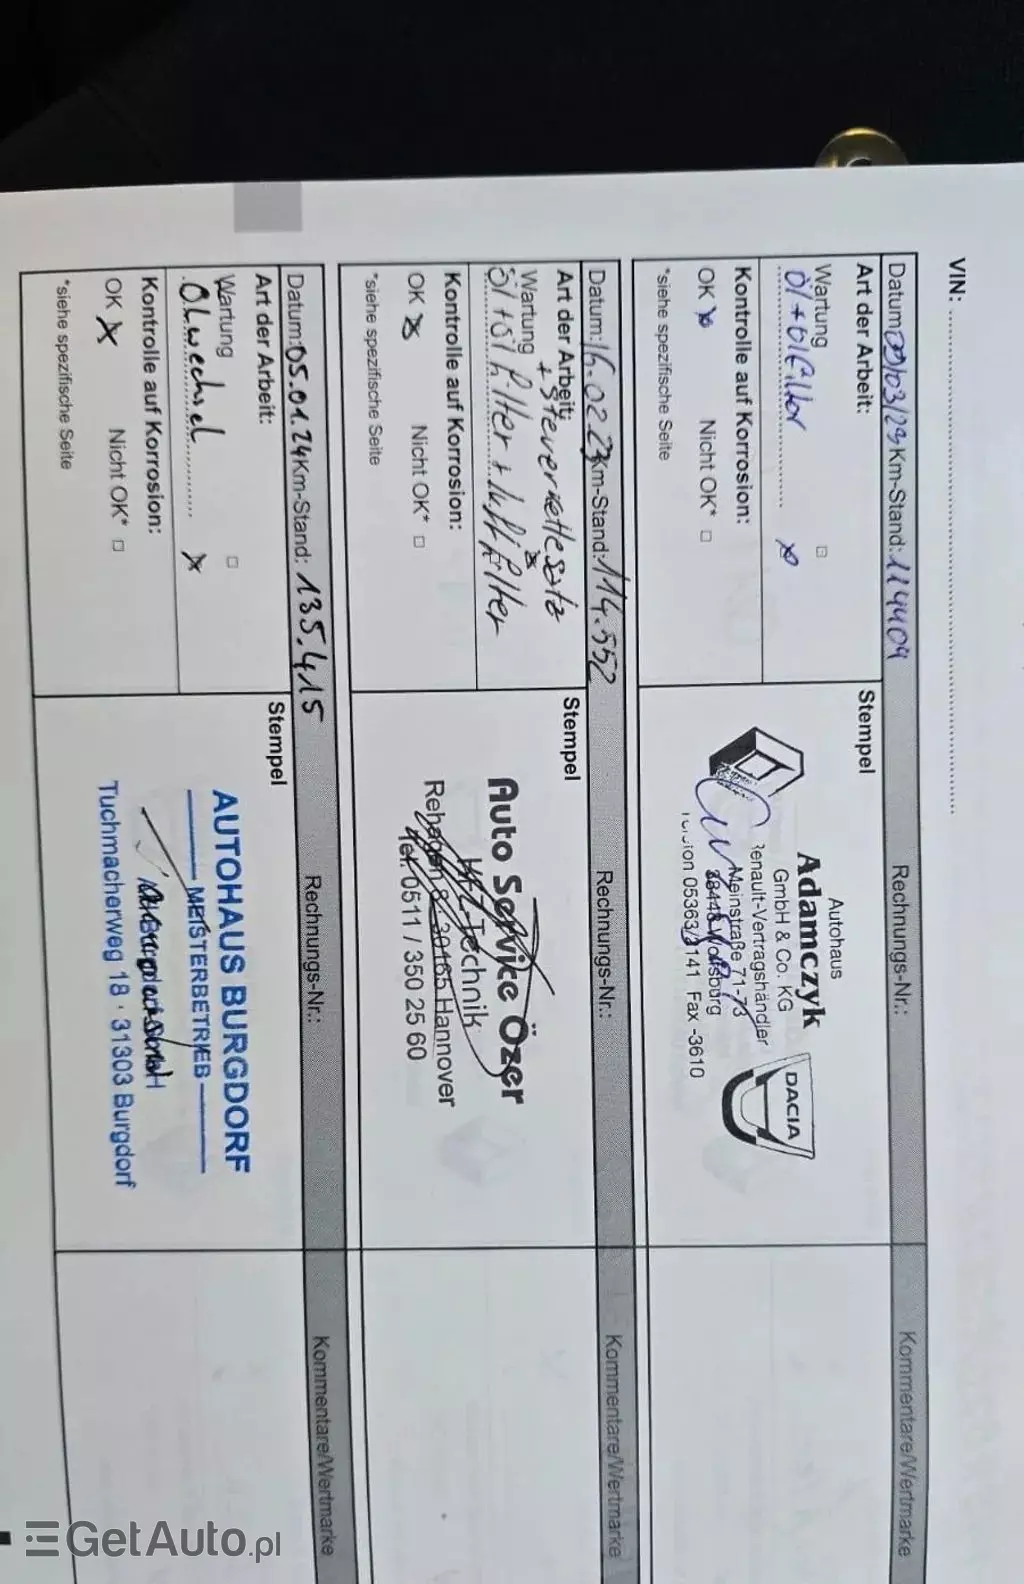 VIN:
Datum 03/23 Km-Stand: 114409
Rechnungs-Nr.:
Kommentare/Wertmarke
Art der Arbeit:
Wartung
Öl + Ölfilter
Kontrolle auf Korrosion:
OK Nicht OK*
*siehe spezifische Seite
Stempel
Autohaus
Adamczyk
GmbH & Co. KG
Renault-Vertragshändler
Meinstraße 71-73
Wolfsburg
05363/3141 Fax -3610
DACIA
Datum: 16.02.23 Km-Stand: 114.552
Rechnungs-Nr.:
Kommentare/Wertmarke
Art der Arbeit:
+ Steuerkettesatz
Wartung
Öl + Öl filter + luft filter
Kontrolle auf Korrosion:
OK Nicht OK*
*siehe spezifische Seite
Stempel
Auto Service Özer
Kfz-Technik
Rehagen 8 · 30165 Hannover
Tel. 0511 / 350 25 60
Datum: 05.01.24 Km-Stand: 135.415
Rechnungs-Nr.:
Kommentare/Wertmarke
Art der Arbeit:
Wartung
Ölwechsel
Kontrolle auf Korrosion:
OK Nicht OK*
*siehe spezifische Seite
Stempel
AUTOHAUS BURGDORF
MEISTERBETRIEB
Tuchmacherweg 18 · 31303 Burgdorf
GetAuto.pl